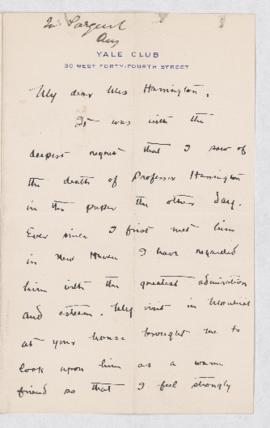 Sargent
YALE CLUB
30 WEST FORTY-FOURTH STREET
My dear Mrs Harrington,
It was with the
deepest regret that I saw of
the death of Professor Harrington
in the paper the other day.
Ever since I first met him
in New Haven I have regarded
him with the greatest admiration
and esteem. My visit in Montreal
at your house brought me to
look upon him as a warm
friend so that I feel strongly